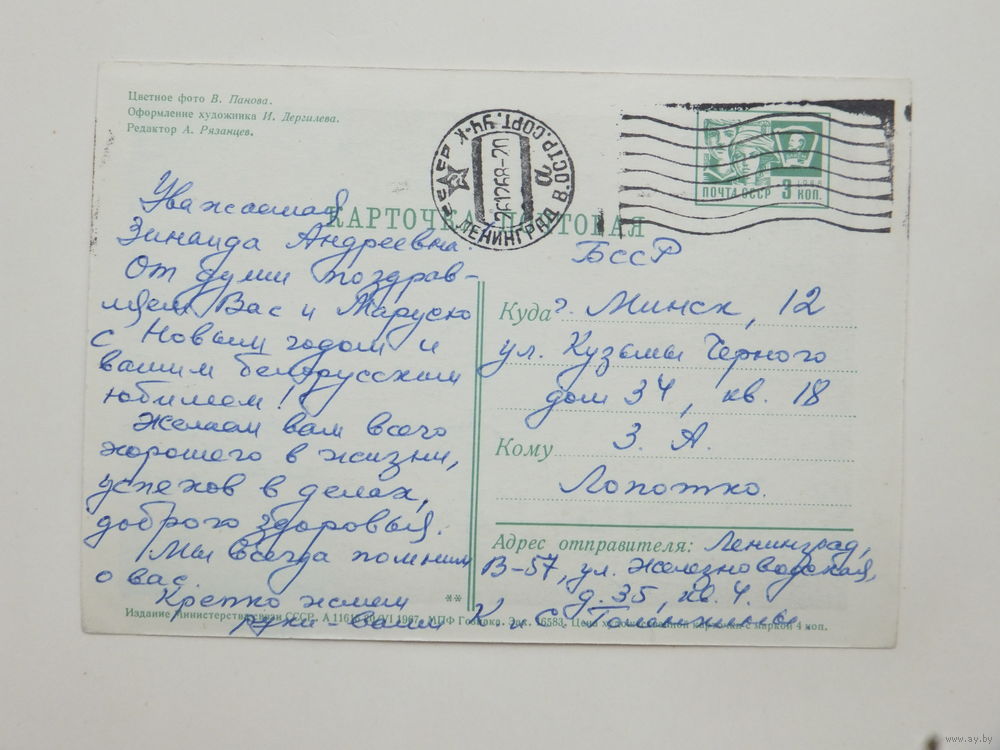 Цветное фото В. Панова.
Оформление художника И. Дергилева.
Редактор А. Рязанцев.
ЛЕНИНГРАД В.ОСТР.СОРТ.УЧ-К
261268-20
а
ПОЧТА СССР 3 КОП.
КАРТОЧКА ПОЧТОВАЯ
Уважаемая
Зинаида Андреевна!
От души поздрав-
ляем Вас и Марусю
с Новым годом и
вашим белорусским
юбилеем!
Желаем вам всего
хорошего в жизни,
успехов в делах,
доброго здоровья.
Мы всегда помним
о вас.
Крепко жмем
руки - ваши
БССР
Куда г. Минск, 12
ул. Кузьмы Черного
дом 34, кв. 18
Кому З. А.
Лопотко.
Адрес отправителя: Ленинград,
В-57, ул. Железноводская,
д. 35, кв. 4.
**
Издание Министерства связи СССР. 1967. МПФ Гознака. Зак. 16583. Цена художественной карточки с маркой 4 коп.
www.ay.by